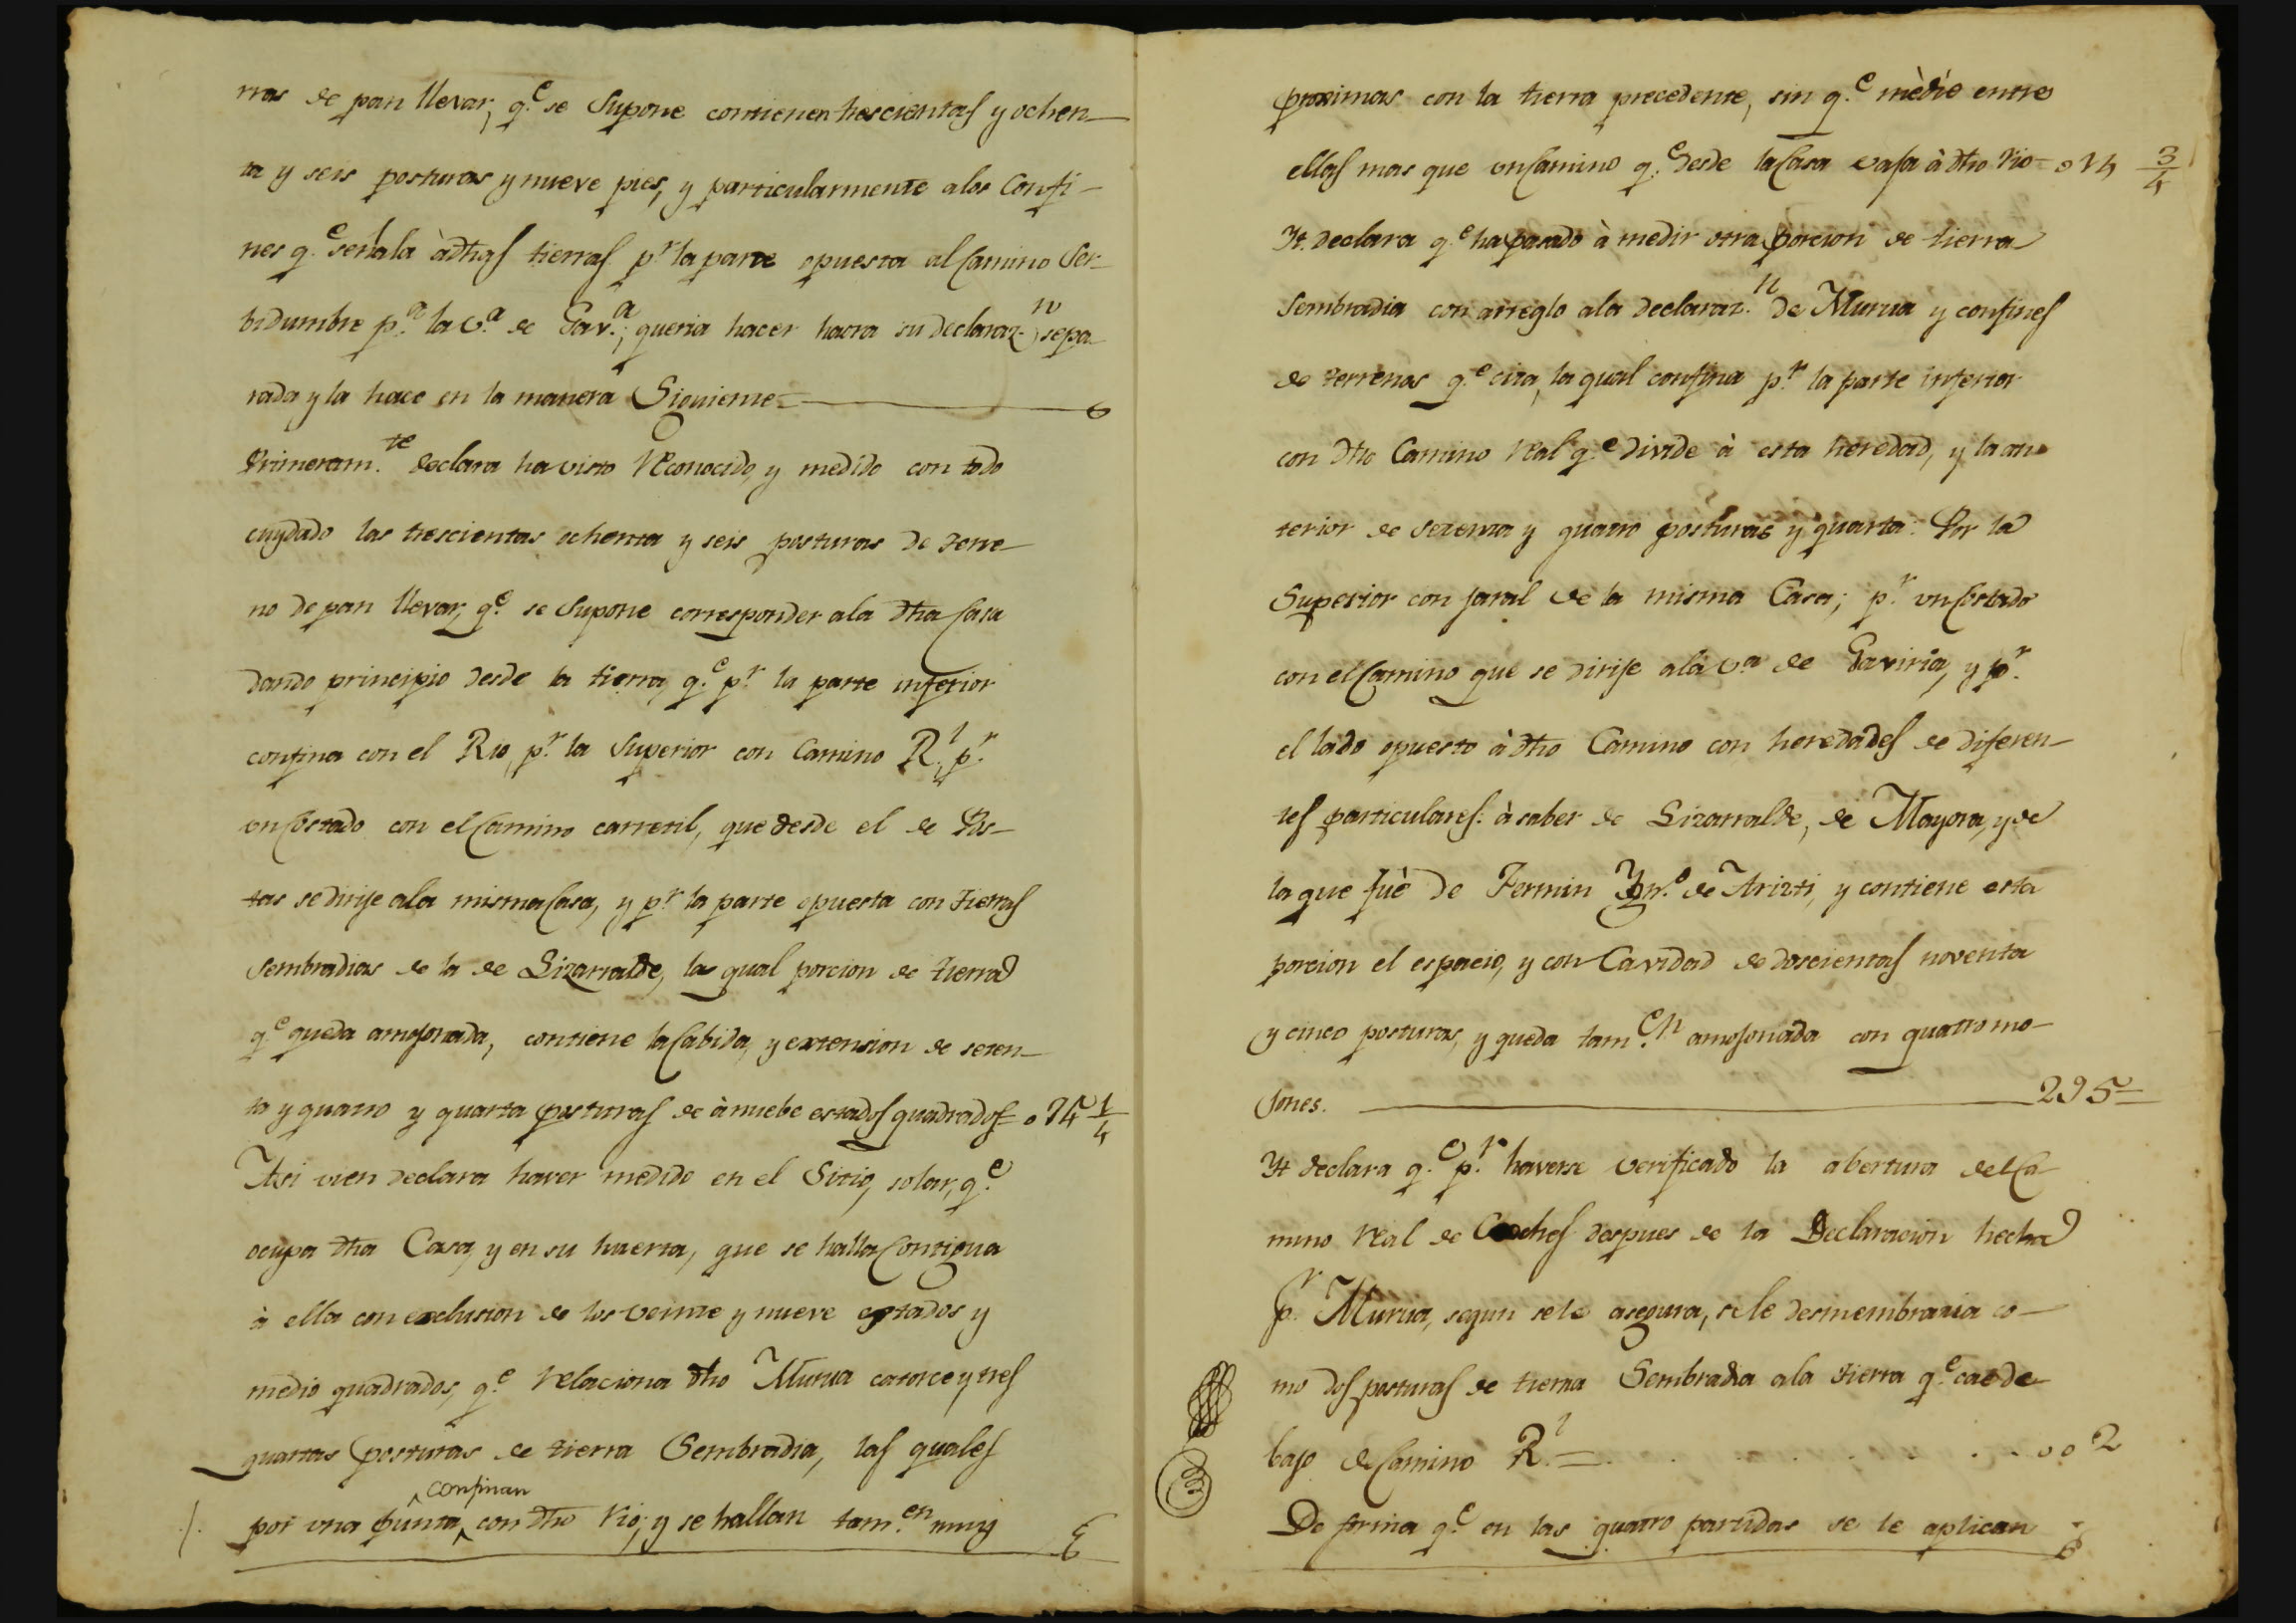 rras de pan llevar, q.e se Supone contienen trescientas y ochen-
ta y seis posturas y nueve pies, y particularmente alos Confi-
nes q.e señala àdhas tierras p.r la parte opuesta al Camino Ser-
bidumbre p.a la v.a de Gav.a; queria hacer haora su declaraz.n sepa-
rada y la hace en la manera Siguiente=
Primeram.te declara ha visto Reconocido, y medido con todo
cuydado las trescientas ochenta y seis posturas de terre-
no de pan llevar, q.e se Supone corresponder ala dha Casa
dando principio desde la tierra, q.e p.r la parte inferior
confina con el Rio, p.r la Superior con Camino R.l p.r
un Costado con el Camino carretil, que desde el de Pos-
tas se dirije ala misma Casa, y p.r la parte opuesta con tierras
Sembradias de la de Lizarralde, la qual porcion de tierra
q.e queda amojonada, contiene la Cabida, y extension de seten-
ta y quatro y quarta posturas de à nuebe estados quadrados= 074 1/4
Asi vien declara haver medido en el Sitio, solar, q.e
ocupa dha Casa, y en su huerta, que se halla Contigua
à ella con exclusion de los veinte y nueve estados y
medio quadrados, q.e Relaciona dho Murua catorce y tres
quartas posturas de tierra Sembradia, las quales
confinan
por una punta con dho Rio, y se hallan tam.en muy
proximas con la tierra precedente, sin q.e mèdie entre
ellas mas que un Camino q.e desde la Casa vaja à dho Rio= 014 3/4
Yt. declara q.e ha pasado à medir otra porcion de tierra
Sembradia con arreglo ala declaraz.n de Murua y confines
de terrenos q.e cita, la qual confina p.r la parte inferior
con dho Camino Real q.e divide à esta heredad, y la an-
terior de setenta y quatro posturas y quarta: Por la
Superior con jaral de la misma Casa; p.r un Costado
con el Camino que se dirije ala v.a de Gaviria, y p.r
el lado opuesto à dho Camino con heredades de diferen-
tes particulares: à saber de Lizarralde, de Mayora, y de
la que fuè de Fermin Ygn.o de Arizti, y contiene esta
porcion el espacio, y con Cavidad de doscientas noventa
y cinco posturas, y queda tam.en amojonada con quatro mo-
jones. 295=
Yt declara q.e p.r haverse verificado la abertura del Ca-
mino Real de Coches despues de la Declaracion hecha
p.r Murua, segun se le asegura, se le desmembraria co-
mo dos posturas de tierra Sembradia ala tierra q.e cae de
bajo de Camino R.l = . . . . . . 002
De forma q.e en las quatro partidas se le aplican